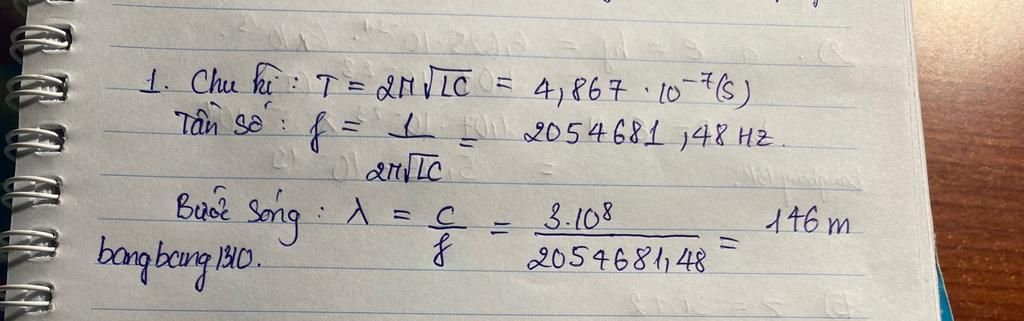 1. Chu kì : T = 2π√LC = 4,867 . 10⁻⁷(s)
Tần số : f = 1 / 2π√LC = 2054681,48 Hz.
Bước sóng : λ = c / f = 3.10⁸ / 2054681,48 = 146 m
bangbang1310.